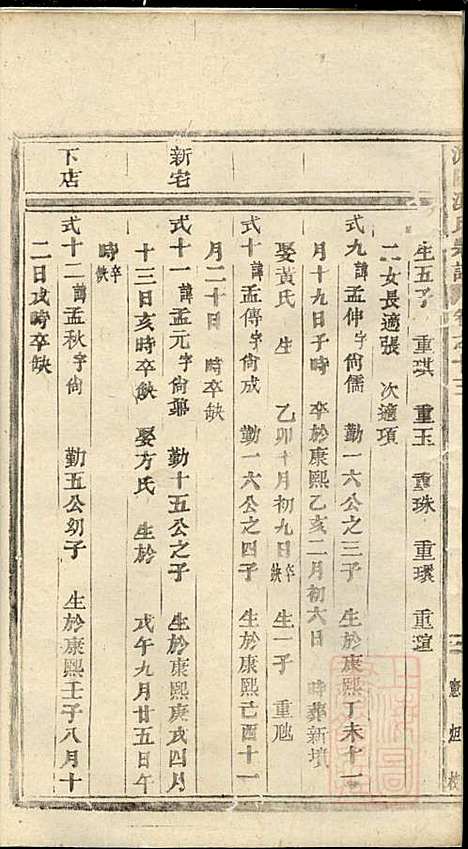 生五子 重琪 重玉 重珠 重環 重瑄
二女長適張 次適項
式九諱孟伸字尙儒 勤一六公之三子 生於康熙丁未十一
月十九日子時 卒於康熙乙亥二月初六日 時葬新墳
娶黃氏 生 乙卯十月初九日卒缺 生一子 重
式十諱孟傳字尙成 勤一六公之四子 生於康熙己酉十一
月二十日 時卒缺
新宅
式十一諱孟元字尙 勤十五公之子 生於康熙庚戌四月
十三日亥時卒缺 娶方氏 生於 戊午九月廿五日午
時卒缺
下店
式十二諱孟秋字尙 勤五公幼子 生於康熙壬子八月十
二日戌時卒缺